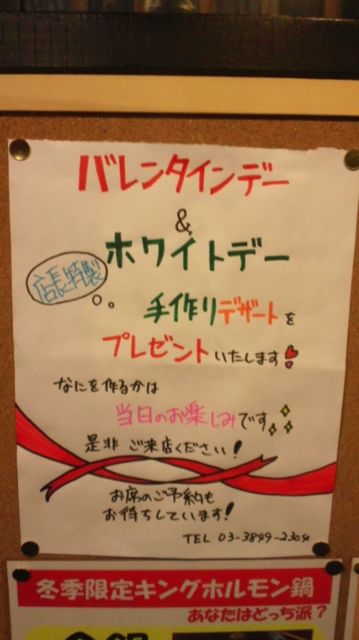 バレンタインデー
&
ホワイトデー
店長特製
手作りデザートを
プレゼントいたします
なにを作るかは
当日のお楽しみです
是非 ご来店ください!
お席のご予約も
お待ちしています!
TEL 03-3899-2304
冬季限定キングホルモン鍋
あなたはどっち派?